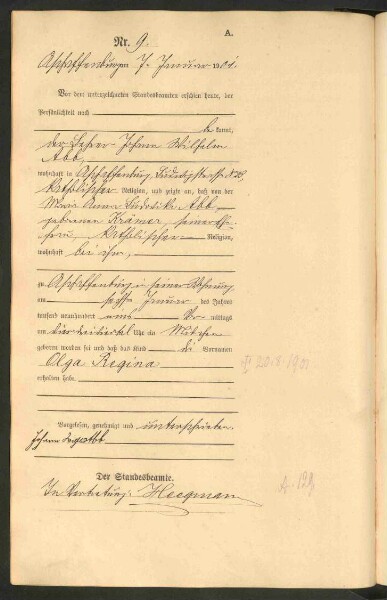 A.
Nr. 9.
Aschaffenburg am 7. Januar 1901.
Vor dem unterzeichneten Standesbeamten erschien heute, der
Persönlichkeit nach
be kannt,
der Lehrer Johann Wilhelm
Abb,
wohnhaft in Aschaffenburg,
katholischer Religion, und zeigte an, daß von der
Maria Anna Abb
geborenen Krämer, seiner Ehe
frau, katholischer Religion,
wohnhaft bei ihm,
zu Aschaffenburg in seiner Wohnung
am sechsten Januar des Jahres
tausend neunhundert eins Vor mittags
um Uhr ein Mädchen
geboren worden sei und daß das Kind die Vornamen
Olga Regina
erhalten habe.
Vorgelesen, genehmigt und unterschrieben
Johann Abb
Der Standesbeamte.
In Vertretung: Heegmann